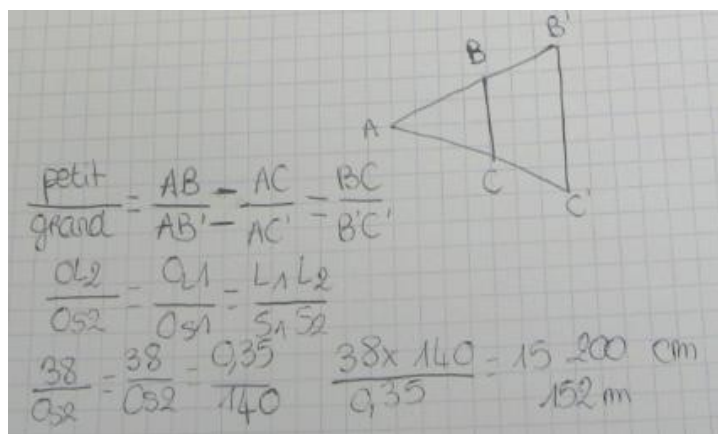 B'
B
A
C
C'
petit/grand = AB/AB' = AC/AC' = BC/B'C'
OL2/OS2 = OL1/OS1 = L1L2/S1S2
38/OS2 = 38/OS2 = 0,35/140    38 x 140/0,35 = 15 200 cm
152 m